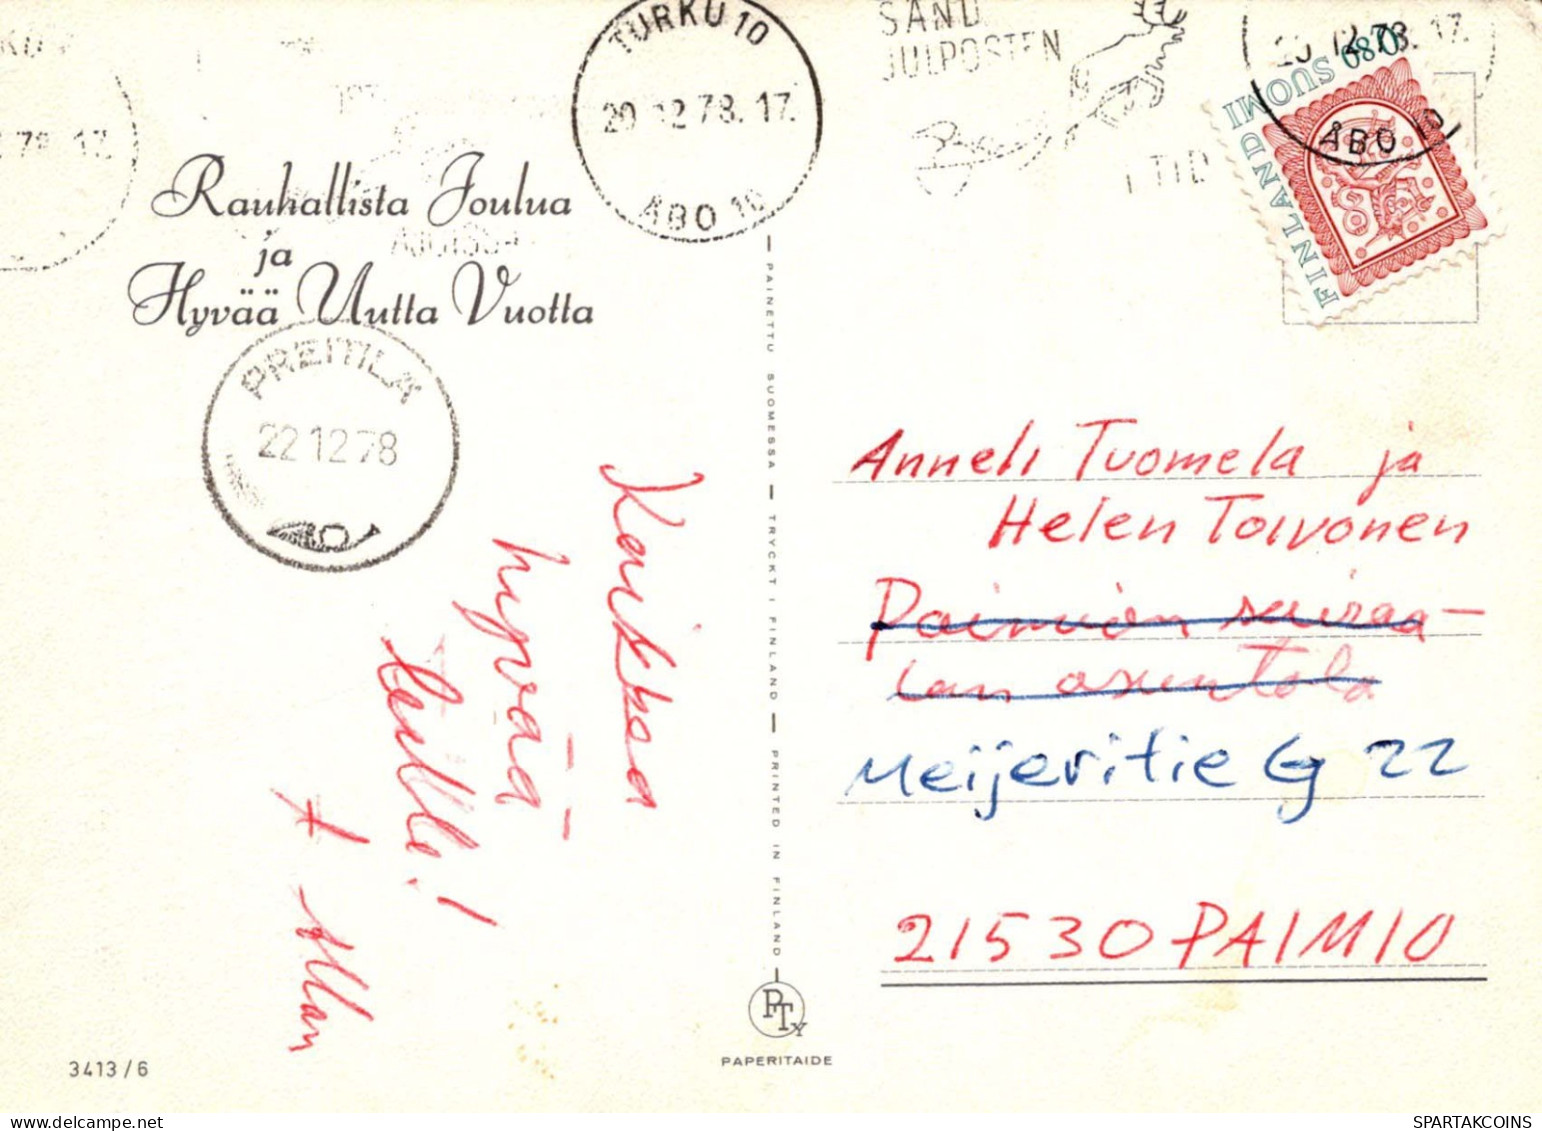 TURKU 10
20 12.78.17.
ÅBO 10
SÄND
JULPOSTEN
I TID
12.78.17.
ÅBO 10
0,80
SUOMI
FINLAND
78 17.
Rauhallista Joulua
ja
Hyvää Uutta Vuotta
PREITILÄ
22 12 78
PAINETTU SUOMESSA — TRYCKT I FINLAND — PRINTED IN FINLAND
Kaikkea
hyvää
teille!
Allan
Anneli Tuomela ja
Helen Toivonen
Paimion sairaa-
lan asuntola
Meijeritie G 22
21530 PAIMIO
PTy
PAPERITAIDE
3413/6
SPARTAKCOINS